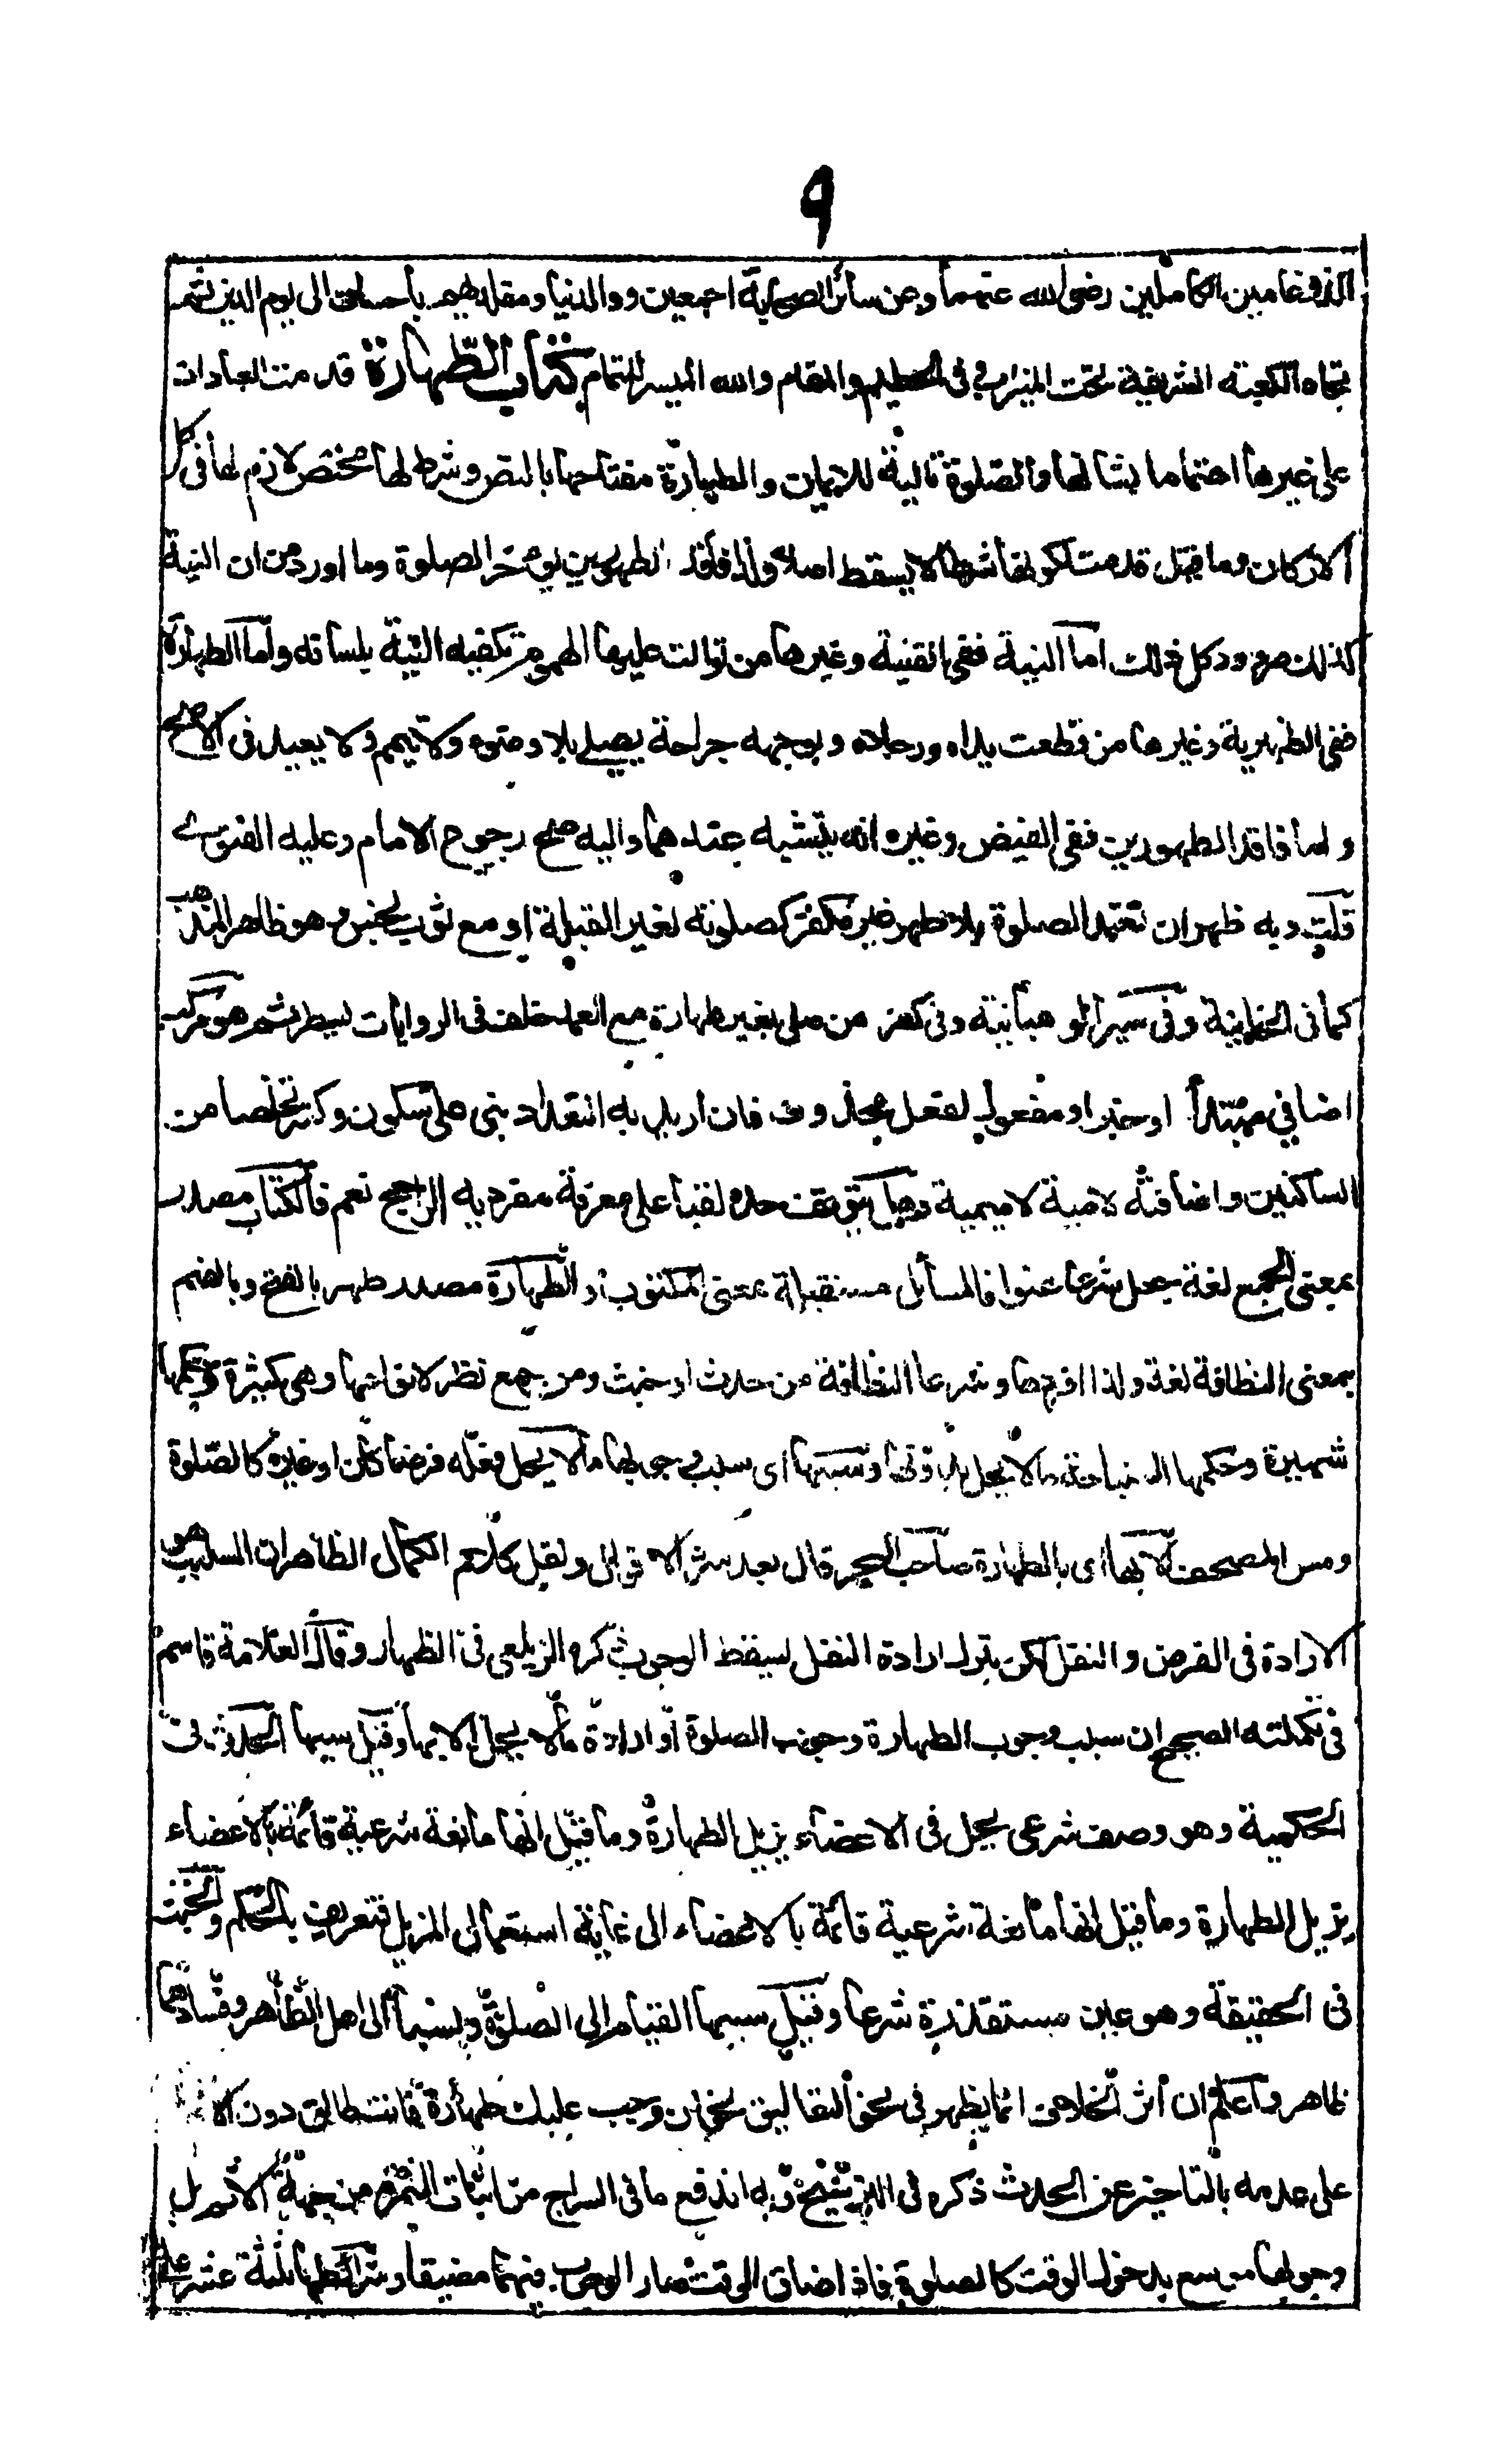 ٩
الضرغامين الكاملين رضى الله عنهما وعن سائر الصحابة اجمعين ووالدينا ومقلديهم باحسان الى يوم الدين ثم
تجاه الكعبة الشريفة تحت الميزاب وفى الحطيم والمقام والله الميسر للتمام كتاب الطهارة قدمت العبادات
على غيرها اهتماما بشانها والصلوة تالية للايمان والطهارة مفتاحها بالنص وشرط لها مختص لازم لها فى كل
الاركان وما قيل قدمت لكونها شرطا لا يسقط اصلا ولذا فاقد الطهورين يؤخر الصلوة وما اورد من ان النية
كذلك مردود كل ذلك اما النية ففى القنية وغيرها من توالت عليها الهموم تكفيه النية بلسانه واما الطهارة
ففى الظهيرية وغيرها من قطعت يداه ورجلاه وبوجهه جراحة يصلى بلا وضوء ولا تيمم ولا يعيد فى الاصح
واما فاقد الطهورين ففى الفيض وغيره انه يتشبه عندهما واليه صح رجوع الامام وعليه الفتوى
قلت وبه ظهر ان تعمد الصلوة بلا طهر غير مكفر كصلوته لغير القبلة او مع ثوب نجس وهو ظاهر المذهب
كما فى الخانية وفى سير الوهبانية وفى كفر من صلى بغير طهارة مع العمد خلف فى الروايات يسطر ثم هو مركب
اضافي مبتدأ او خبر او مفعول لفعل محذوف فان اريد به التعداد بنى على سكون وكسر تخلصا من
الساكنين واضافته لامية لا ميمية وهل يتوقف حده لقبا على معرفة مفرديه الراجح نعم فالكتاب مصدر
بمعنى الجمع لغة جعل شرعا عنوانا لمسائل مستقلة بمعنى المكتوب والطهارة مصدر طهر بالفتح وبالضم
بمعنى النظافة لغة ولذا افردها وشرعا النظافة من حدث او خبث ومن جمع نظر لانواعها وهى كثيرة وحكمها
شهيرة وحكمها استباحة ما لا يحل بدونها وسببها اى سبب وجوبها ما لا يحل فعله فرضا كان او غيره كالصلوة
ومس المصحف الا بها اى بالطهارة صاحب البحر قال بعد سرد الاقوال ونقل كلام الكمال الظاهر ان السبب هو
الارادة فى الفرض والنفل لكن بترك ارادة النفل يسقط الوجوب ذكره الزيلعى فى الظهار وقال العلامة قاسم
فى نكته الصحيح ان سبب وجوب الطهارة وجوب الصلوة او ارادة ما لا يحل الا بها وقيل سببها الحدث فى
الحكمية وهو وصف شرعى يحل فى الاعضاء يزيل الطهارة وما قيل انها مانعة شرعية قائمة بالاعضاء
يزيل الطهارة وما قيل انها مانعة شرعية قائمة بالاعضاء الى غاية استعمال المزيل فتعريف بالحكم والخبث
فى الحقيقة وهو عين مستقذرة شرعا وقيل سببها القيام الى الصلوة ونسبا الى اهل الظاهر وفسادهما
ظاهر واعلم ان اثر الخلاف انما يظهر فى نحو التعاليق نحو ان وجب عليك طهارة فانت طالق دون الاثم
على عدمه بالتاخير عن الحدث ذكره فى التوشيح وبه اندفع ما فى السراج من اثبات الثمرة من جهة الاثم بل
وجوبها موسع بدخول الوقت كالصلوة فاذا ضاق الوقت صار الوجوب فيهما مضيقا وشرائطها ثلثة عشر على